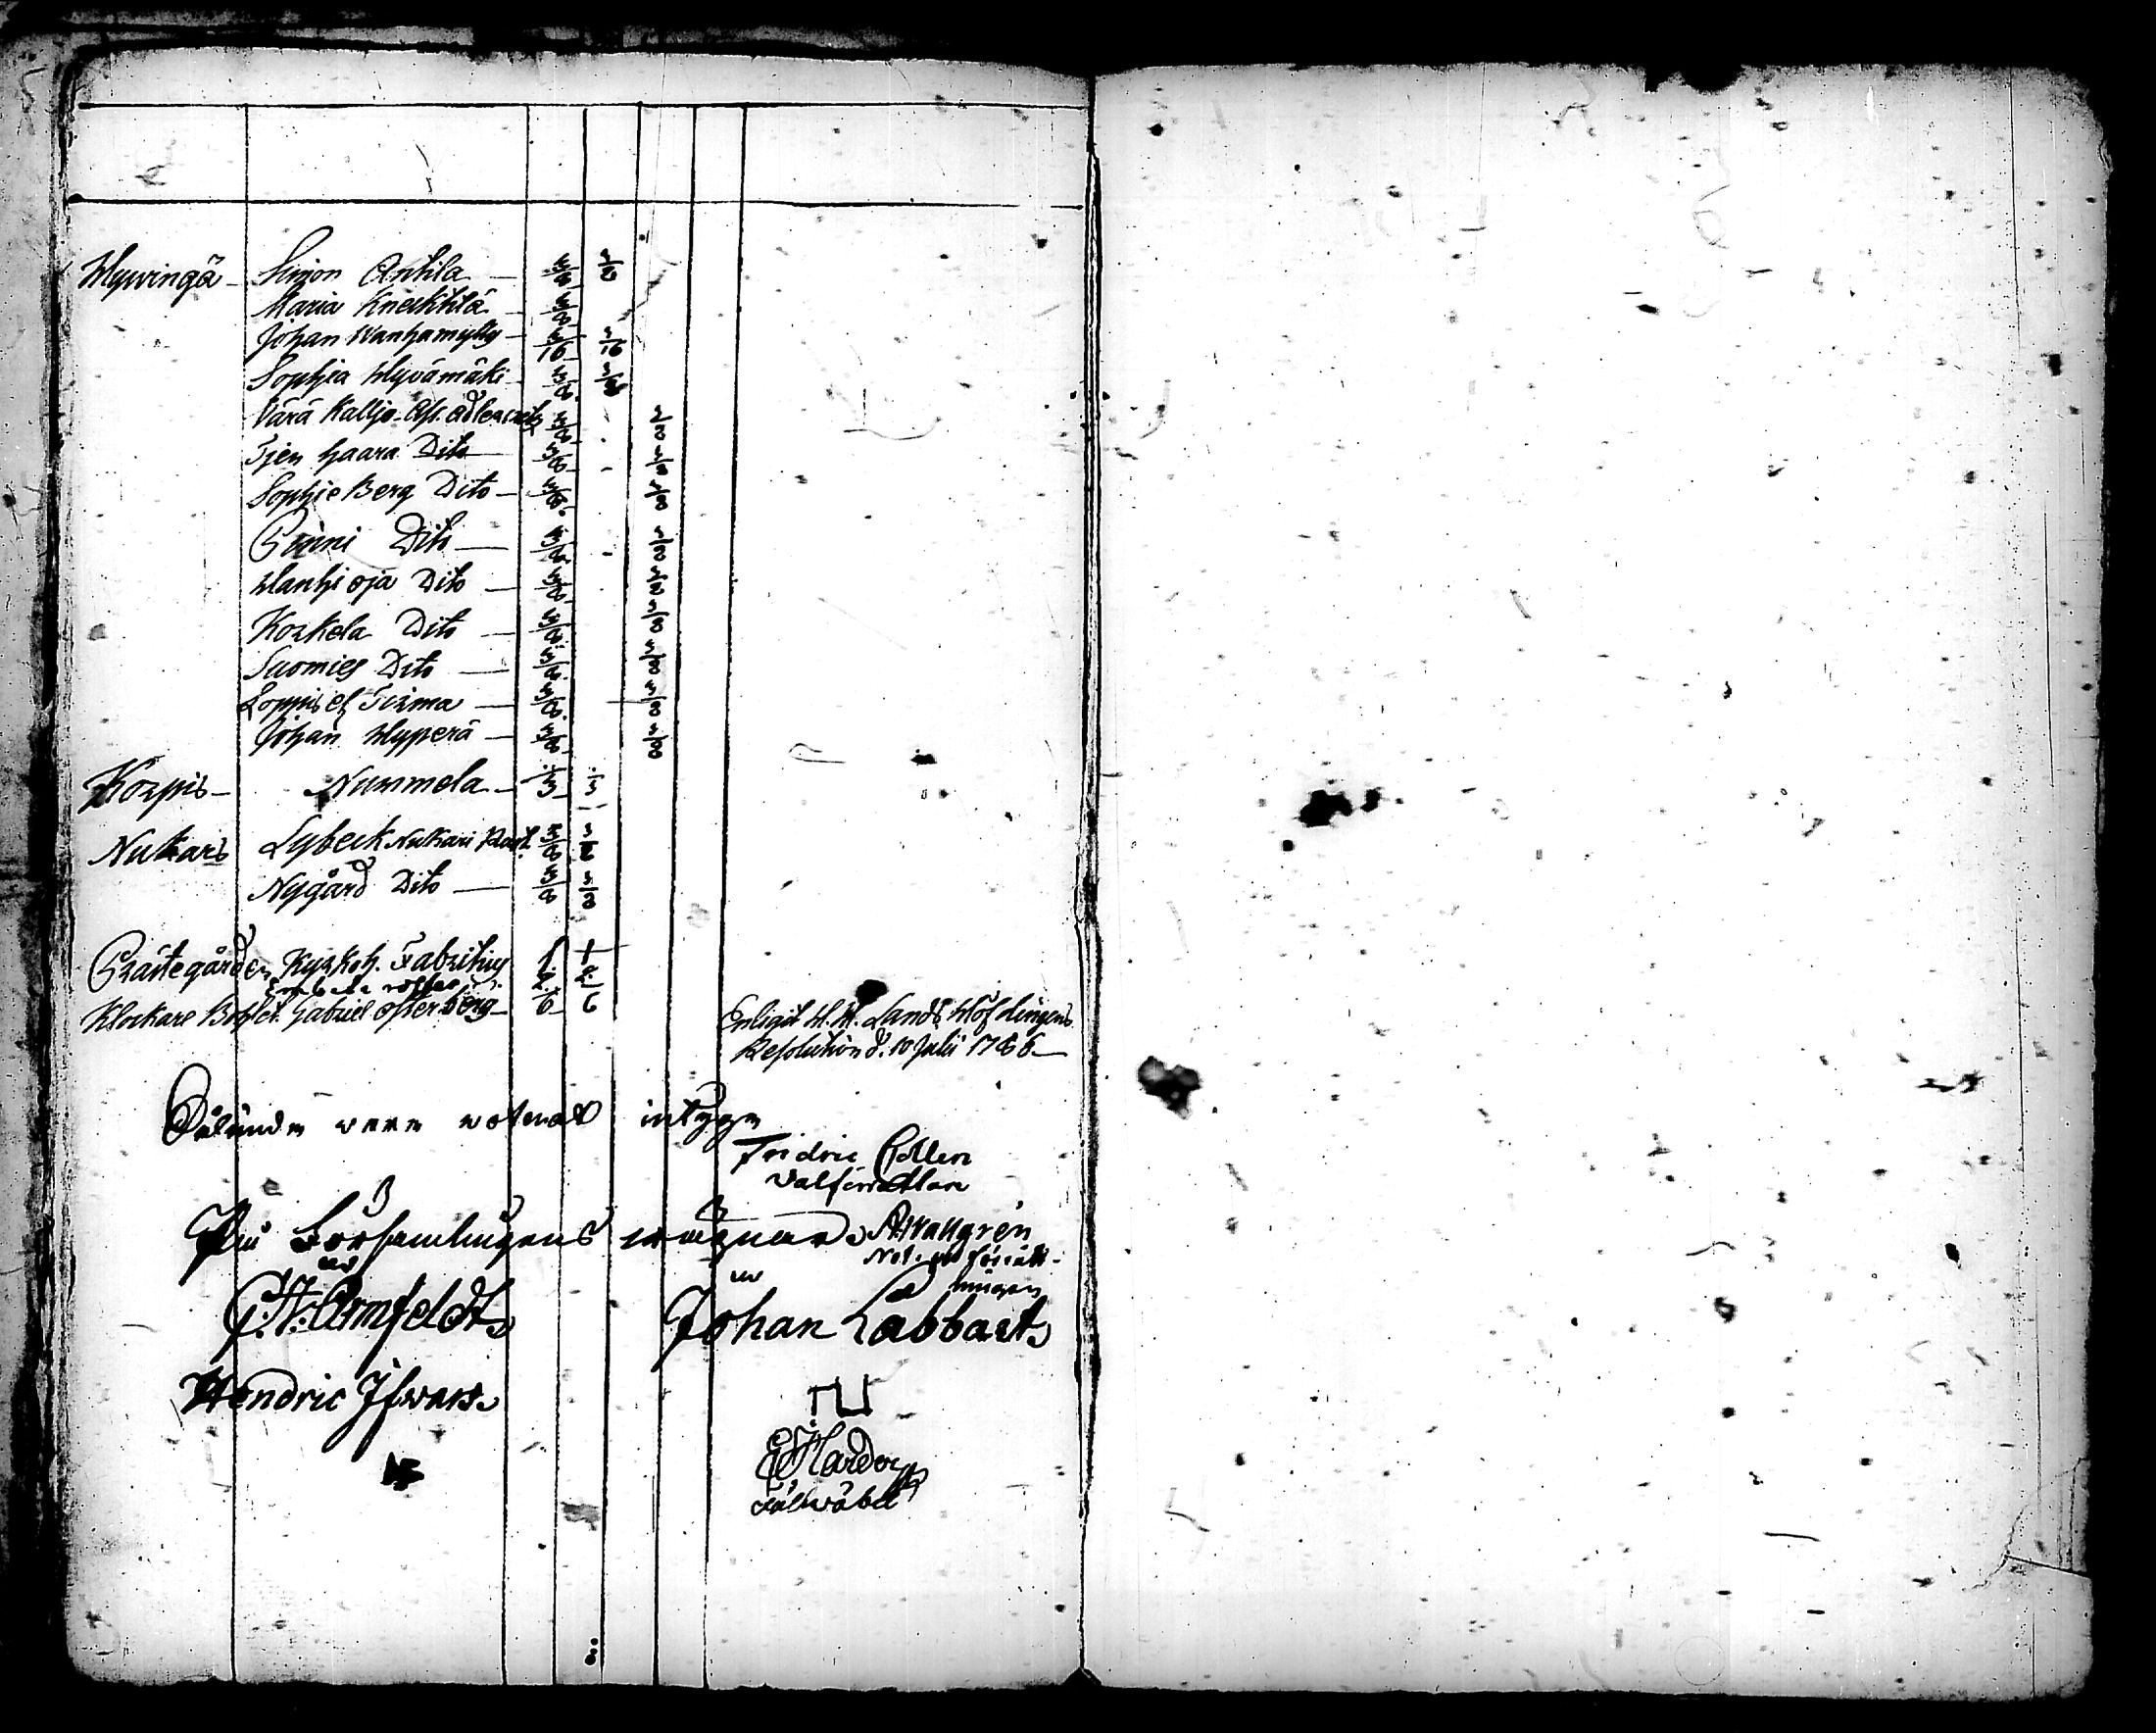 Hyvingä Simon Antila 3/8 3/8
Maria Knecktilä 3/8
Johan Wanhamylly 3/16 3/16
Sophia Hyvämäki 3/8 3/8
Värä Kalljo Adlercreutz 3/8 3/8
Jjen haara Dito 3/8 3/8
Sophie Berg Dito 3/8 3/8
Dito 3/8 3/8
Hanhi oja Dito 3/8 3/8
Korkela Dito 3/8 3/8
Suomies Dito 3/8 3/8
Loppis el Firma 3/8 3/8
Johan Hyperä 3/8 3/8
Korpis Nummela 1/3 1/3
Nukars Lybeck Nukari Rust. 3/8 3/8
Nygård Dito 3/8 3/8
Prästegården Kyrkoh. Fabritius
Klockare Bohlet. Gabriel Österberg 1/6 1/6
Enligit H. H. Lands Höfdingens
Resolution d. 10 Julii 1766
Sålunda vara voterat intyga
Fridric Collen
Valförrättare
På Församlingens vägnar AWallgrén
Not. vid förrätt-
ningen
Armfeldt
Johan Labbart
Hendric Ifwars
Hardorff